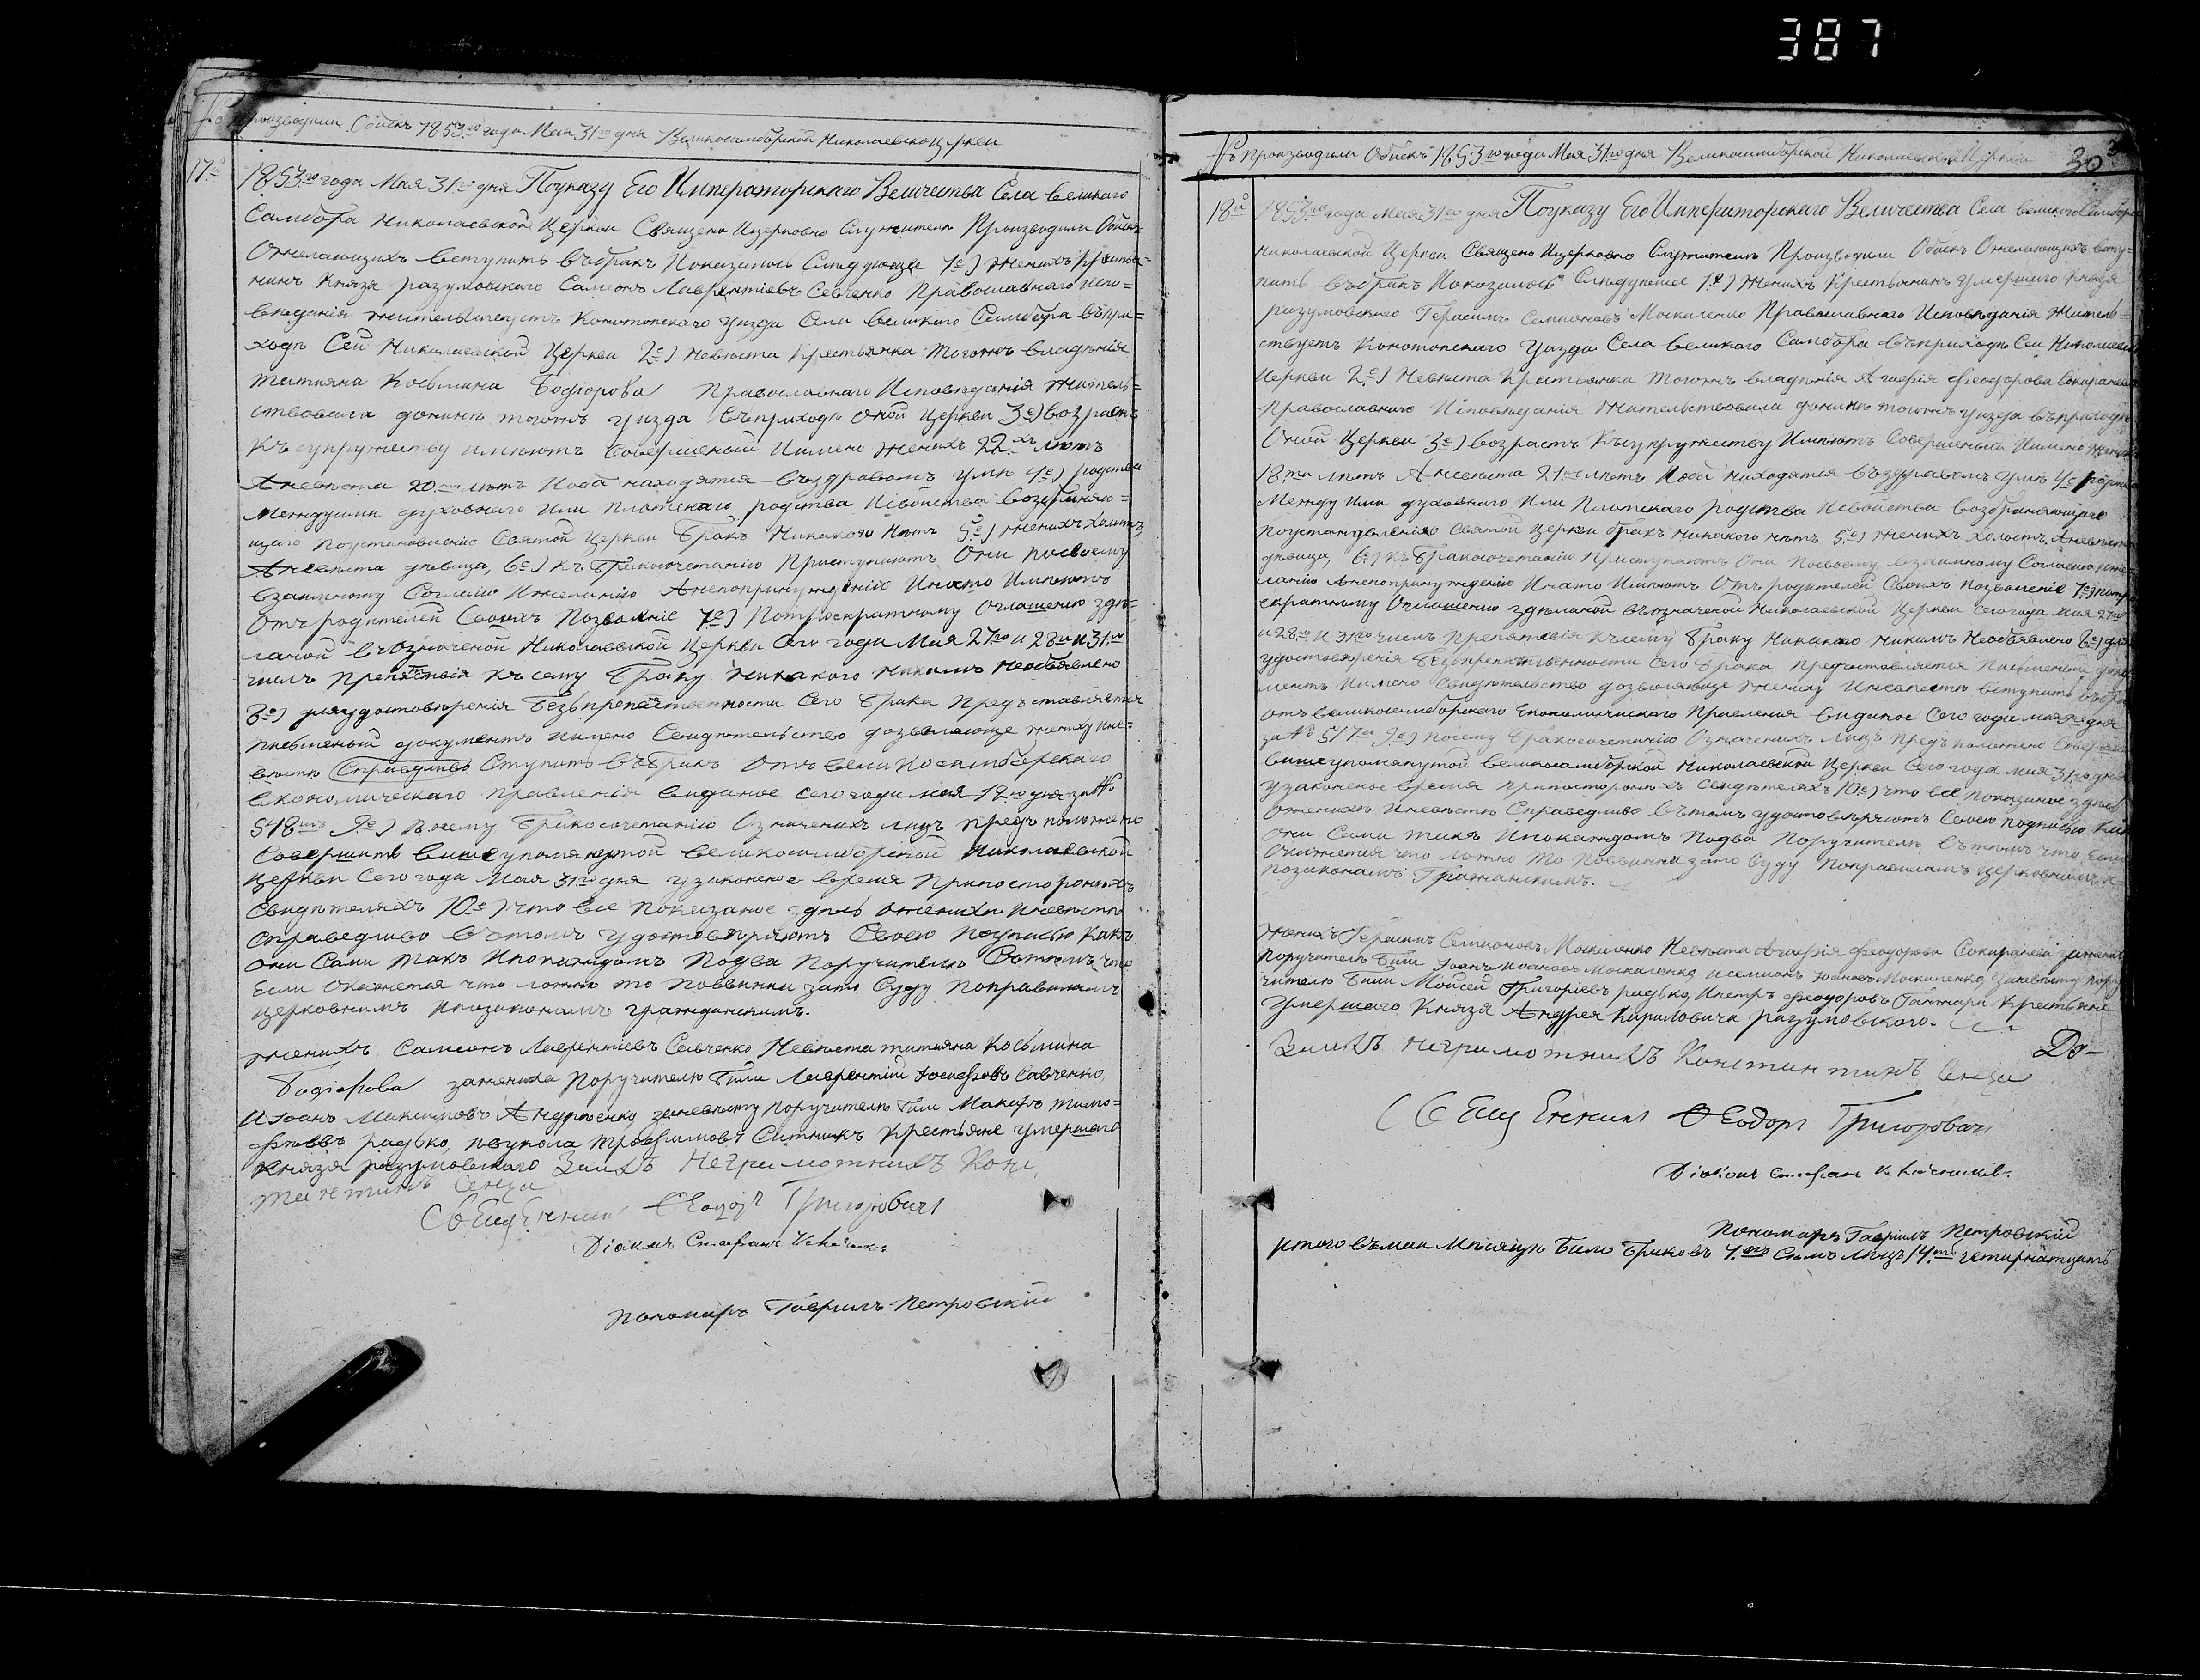 387
Производили Обыскъ 1853го года Мая 31го дня Великосамборской Николаевской Церкви
17е
1853го года Мая 31го дня Поуказу Его Императорскаго Величества Села великаго
Самбора Николаевской Церкви Священо Ицерковно Служители Производили Обыскъ
Ожелающихъ вступить въбракъ Показалось Следующее 1е) женихъ крестья=
нинъ Князя разумовского Самсонъ Лаврентіевъ Савченко Православнаго испо=
веданія жительствуетъ Конотопскаго уизда Села великаго Самбора въпри=
ходъ Сей Николаевской Церкви 2е) невъста Крестьянка тогожъ владънія
татияна Косьмина Бодіорова Православнаго Исповъданія житель=
ствовала донинъ тогожъ уизда въприходъ оной Церкви 3е) возрастъ
Къ супружеству имъютъ Совершеный Имено женихъ 22хъ лътъ
Аневъста 20ть лътъ Иоба находятся въздравомъ умъ 4е) родства
междуими духовнаго или плотскаго родства Исвойства возбраняю=
щаго поустановленію Святой Церкви Бракъ Никакого Нътъ 5е) женихъ холостъ
Аневъста дъвица, 6е) Къ бракосочетанію Приступаютъ Они посвоему
взаимному Согласію Ижеланію Анепопринужденію Инато Имъютъ
Отъ родителей Своихъ Позволеніе 7е) Потроекратному Оглашенію здъ=
ланой въозначеной Николаевской Церкви Сего года Мая 27го и 28го и 31го
числъ Препятствія Къ сему Браку Никакого Никимъ Необъявлено
8е) дляудостовъренія Безъпрепятственности Сего брака Предъставляется
писменый документъ имено Свидътельство дозволяюще жениху ине=
въстъ Справедливо Ступить въбракъ Отъ великосамборскаго
Економическаго Правленія виданое Сего года мая 19го дня за№
518мъ 9е) Посему Бракосочетанію Означенихъ лицъ предъположено
Совершить вишеупомянутой великосамборской Николаевской
Церкви Сего года Мая 31го дня узаконеное время Припостороннихъ
Свидътеляхъ 10е) что все показаное здъсь оженихъ Иневъстъ
Справедливо въ томъ удостовъряютъ Своею подписью Какъ
они Сами такъ Ипокаждомъ Подва Поручителю Вотомъ что
Если окажется что ложно то Повинни зато Суду Поправиламъ
церковнимъ Ипозаконамъ гражданскимъ.
женихъ Самсонъ Лаврентіевъ Савченко Невъста татияна Косьмина
Бодіорова зажениха Поручителю Били Лаврентій Иосифовъ Савченко,
Иіоанъ Максимовъ Андрюенко заневъсту Поручителю били Макаръ тимо=
фъевъ радько, трофимовъ Ситникъ Крестьяне умершаго
князя разумовскаго Заихъ неграмотнихъ Конс
тантинъ Сенча
Священникъ Феодоръ Григоровичъ
Діаконъ Стефанъ
пономаръ Гавриилъ Петровскій
Производили Обискъ 1853го года Мая 31го дня Великосамборской Николаевской Церкви 30
18й
1853го года Мая 31го дня Поуказу Его Императорскаго Величества Села великаго Самбора
Николаевской Церкви Священо Ицерковно Служители Производили Обискъ Ожелающихъ всту=
пить въбракъ Показалось Слъдующее 1е) женихъ Крестьянинъ умершаго князя
разумовскаго Герасимъ Семионовъ Москаленко Православнаго Исповъданія житель=
ствуетъ Конотопскаго уизда Села великаго Самбора въприходъ Сей Николаевской
Церкви 2е) Невъста Крестьянка тогожъ владънія Агафія Феодорова Сокиранева
Православнаго Исповъданія жительствовала донинъ тогожъ уизда въприходъ
Оной Церкви 3е) возрастъ Ксупружеству Имъютъ Совершеный Имено женихъ
18ть лътъ Аневъста 21го лътъ Иоба находятся въздравомъ умъ 4е родства
Между Ими духовнаго Или Плотскаго родства Исвойства возбраняющаго
поустановленію Святой Церкви бракъ никакого нътъ 5е) женихъ холостъ, Аневъста
дъвица, 6е) Къ Бракосочетанію Приступаютъ Они Посвоему взаимному Согласію иже=
ланію Анепопринужденію Инато Имъютъ Отъ родителей Своихъ позволеніе 7е) потрое
екратному Оглашенію здъланой въозначеной Николаевской Церкви Сего года мая 27го
и 28го И 31го числъ Препятствія Къ сему браку Никакого никимъ Необъявлено 8е) для
удостовъренія безпрепятственности Сего брака предъставляется Писменый доку
ментъ Имено Свидътельство дозволяюще жениху Иневъстъ вступить въбракъ
отъ великосамборскаго Економическаго Правленія виданое Сего года мая дня
за № 517мъ 9е) посему Бракосочетанію Означенихъ лицъ предъположено Совершить
вишеупомянутой великосамборской Николаевской Церкви Сего года мая 31го дня
узаконеное время припостороннихъ Свидътеляхъ 10е) что все показаное здъсь
оженихъ Иневъстъ Справедливо вътомъ удостовъряютъ Своею подписью Какъ
они Сами такъ Ипокаждомъ Подва Поручителю вътомъ что Если
Окажется что ложно то Повинни зато Суду Поправиламъ церковнимъ и
позаконамъ Гражанскимъ.
женихъ Герасимъ Семионовъ Москаленко Невъста Агафія Феодорова Сокиранева зажениха
Поручитель Били Іоанъ Иоановъ Москаленко, Исемионъ Іоановъ Москаленко, Заневъсту пору
чителю Били Мойсей Григоріевъ радько, Ипетръ Феодоровъ Ганжара Крестьяне
умершаго Князя Андрея Кириловича разумовского.
Заихъ неграмотнихъ Константинъ Сенча До-
Священникъ Феодоръ Григоровичъ
Діаконъ Стефанъ
Пономаръ Гавриилъ Петровскій
Итого въмаи мъсяцъ Било Браковъ 7мъ Семъ Лицъ 14ть четирнатцать